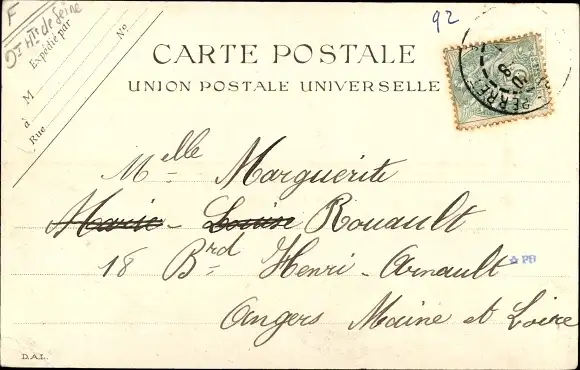 F
Dt Hts de Seine
92
Expédié par
M
à
Rue
No
CARTE POSTALE
UNION POSTALE UNIVERSELLE
PERRE
8
Melle Marguerite
Marie-Louise Rouault
18 Brd Henri-Arnault
☆ PB
Angers Maine et Loire
D.A.L.